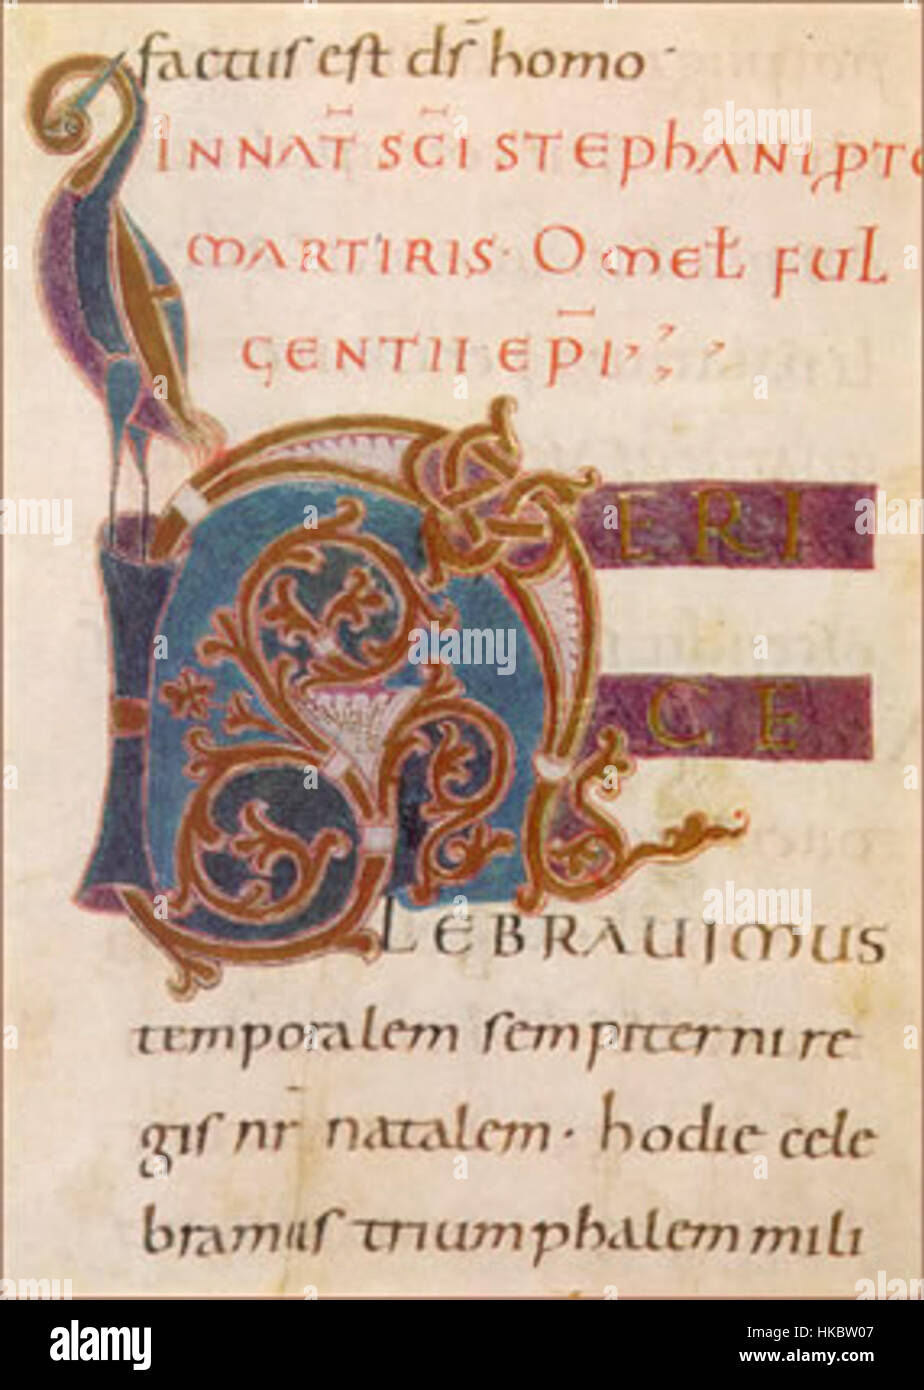 factus est ds̄ homo
IN NAT̄ SC̄I STEPHANI PTO
MARTIRIS · OMEŁ FUL
GENTII EPI
HERI
CE
LEBRAUIMUS
temporalem sempiterni re
gis nr̄ natalem · hodie cele
bramus triumphalem mili
alamy
Image ID: HKBW07
www.alamy.com